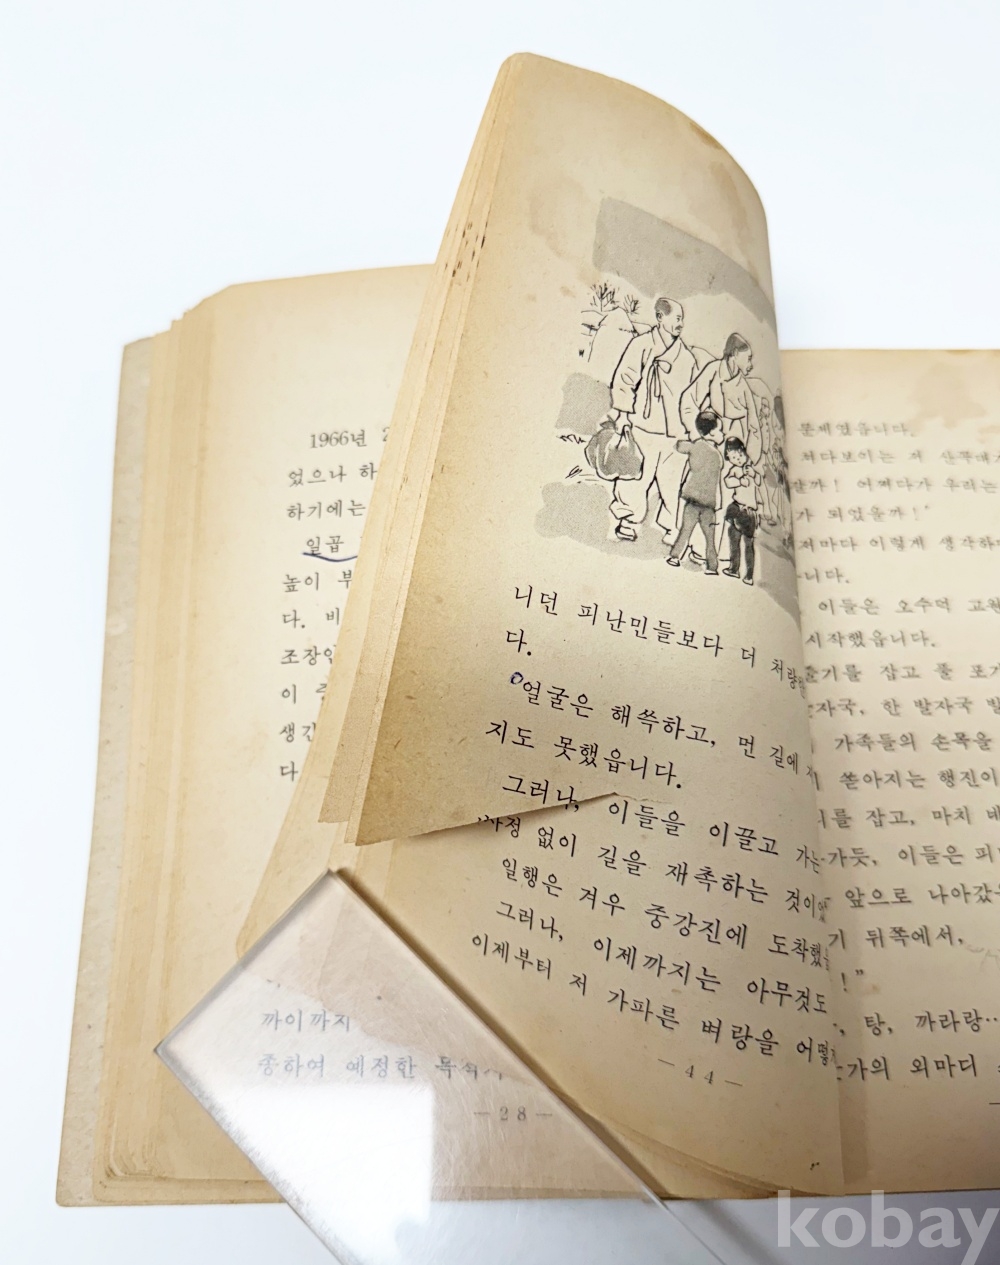 1966년
었으나 하
하기에는
일곱
높이 부
다. 비
조장인
이
생긴
다
까이까지
종하여 예정한
— 28 —
니던 피난민들보다 더 처량
다.
얼굴은 해쓱하고, 먼 길에
지도 못했읍니다.
그러나, 이들을 이끌고 가는
사정 없이 길을 재촉하는 것이
일행은 겨우 중강진에 도착했
그러나, 이제까지는 아무것도
이제부터 저 가파른 벼랑을 어떻
— 44 —
문제였읍니다.
쳐다보이는 저
갈까! 어쩌다가 우리는
가 되었을까!"
저마다 이렇게 생각하
니다.
이들은 오수덕 고원
시작했읍니다.
줄기를 잡고 풀 포기
발자국, 한 발자국
가족들의 손목을
쏟아지는 행진이
를 잡고, 마치
가듯, 이들은 피
앞으로 나아갔
기 뒤쪽에서,
!"
탕, 까라랑…
가의 외마디
kobay